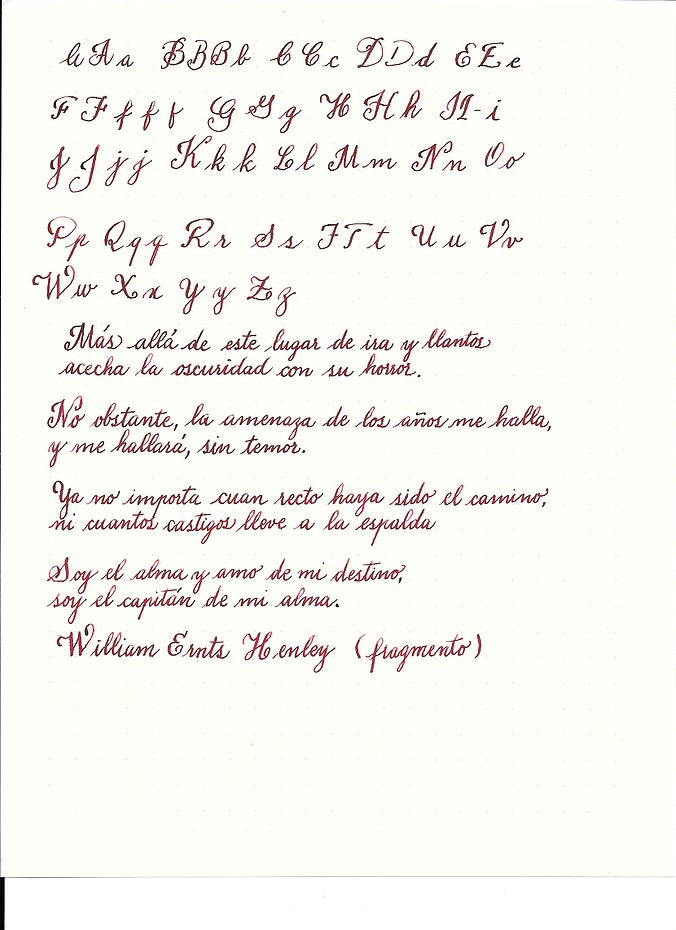 A A a B B B b C C c D D d E E e
F F f f f G G g H H h I I - i
J J j j K k k L l M m N n O o
P p Q q q R r S s T T t U u V v
W w X x Y y Z z
Más allá de este lugar de ira y llantos
acecha la oscuridad con su horror.
No obstante, la amenaza de los años me halla,
y me hallará, sin temor.
Ya no importa cuan recto haya sido el camino,
ni cuantos castigos lleve a la espalda
Soy el alma y amo de mi destino,
soy el capitán de mi alma.
William Ernts Henley (fragmento)